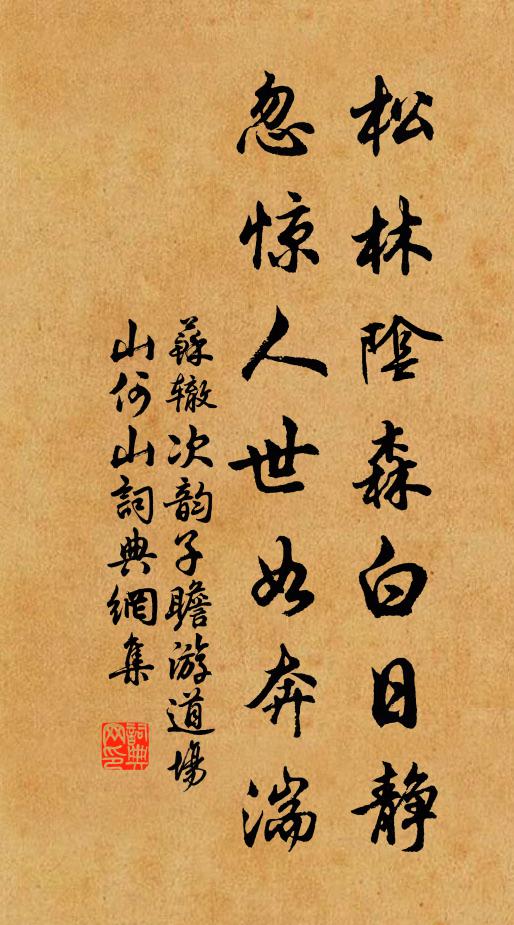 松林陰森白日静
忽惊人世如奔湍
蘇辙次韵子瞻游道場
山何山詞典網集
詞典網印